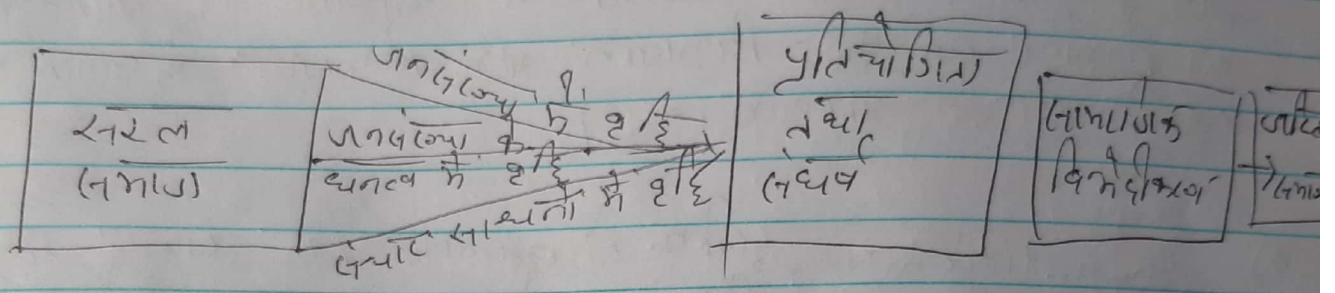 सरल
समाज
जनसंख्या में वृद्धि
जनसंख्या के
घनत्व में वृद्धि
संचार साधनों में वृद्धि
प्रतियोगिता
तथा
संघर्ष
सामाजिक
विभेदीकरण